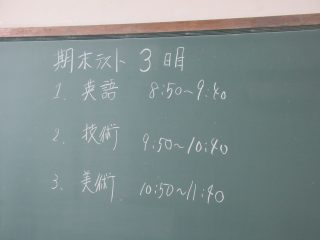 期末テスト 3日目
1. 英語 8:50～9:40
2. 技術 9:50～10:40
3. 美術 10:50～11:40